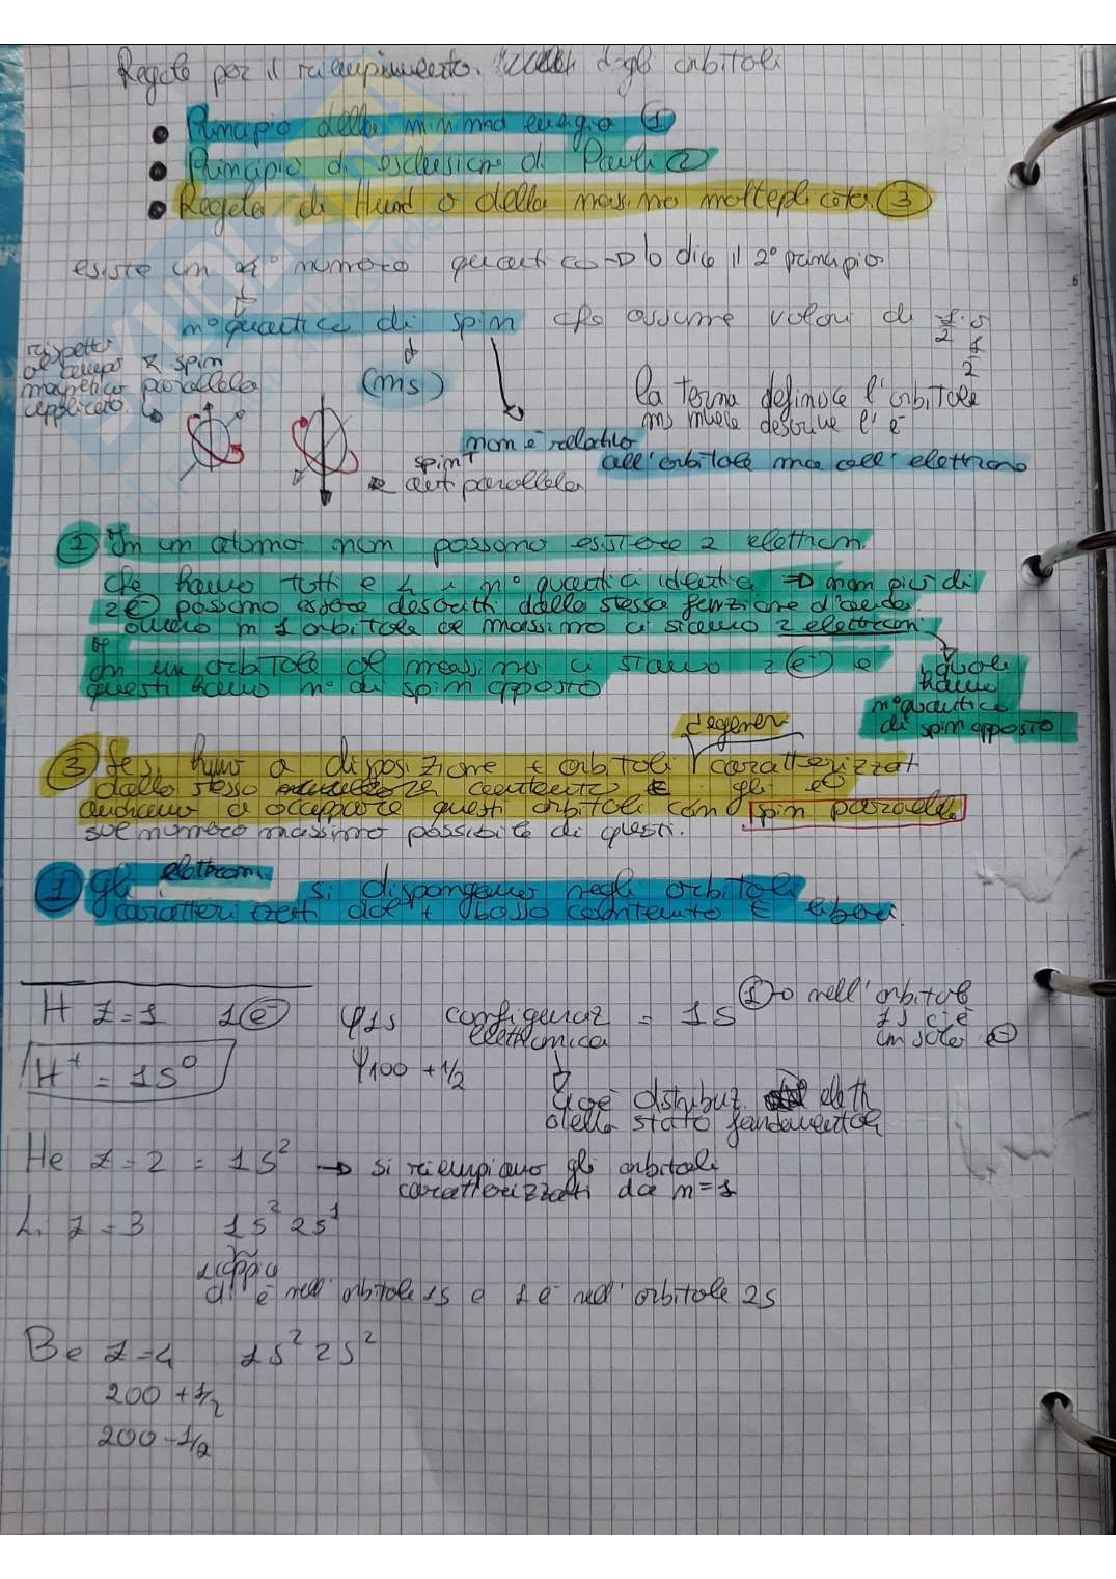 Regole per il riempimento degli orbitali
• Principio della minima energia ①
• Principio di esclusione di Pauli ②
• Regola di Hund o della massima molteplicità ③
esiste un 4° numero quantico → lo dice il 2° principio
n° quantico di spin che assume valori di
rispetto
al campo
magnetico
applicato
spin
parallelo
(ms)
1/2
la terna definisce l'orbitale
ms descrive l'e⁻
non è relativo
all'orbitale ma all'elettrone
spin
antiparallelo
② In un atomo non possono esistere 2 elettroni
che hanno tutti e 4 i n° quantici identici ⇒ non più di
2 e⁻ possono essere descritti dalla stessa funzione d'onda
ovvero in 1 orbitale al massimo ci stanno 2 elettroni
In un orbitale al massimo ci stanno 2 e⁻ e
questi hanno n° di spin opposto
quali
hanno
n° quantico
di spin opposto
degeneri
③ Se si hanno a disposizione + orbitali caratterizzati
dallo stesso contenuto E gli e⁻
andranno a occupare questi orbitali con spin parallelo
sul numero massimo possibile di questi.
① Gli elettroni si dispongono negli orbitali
caratterizzati dal + basso contenuto E
H Z=1 1e⁻ φ1s configuraz = 1s① → nell'orbitale
elettronica
1s c'è
un solo e⁻
H⁺ = 1s⁰
φ100 +1/2
cioè distribuz elett
dello stato fondamentale
He Z=2 = 1s² → si riempiono gli orbitali
caratterizzati da n=1
Li Z=3 1s² 2s¹
1 coppia
di e⁻ nell'orbitale 1s e 1 e⁻ nell'orbitale 2s
Be Z=4 1s² 2s²
200 +1/2
200 -1/2